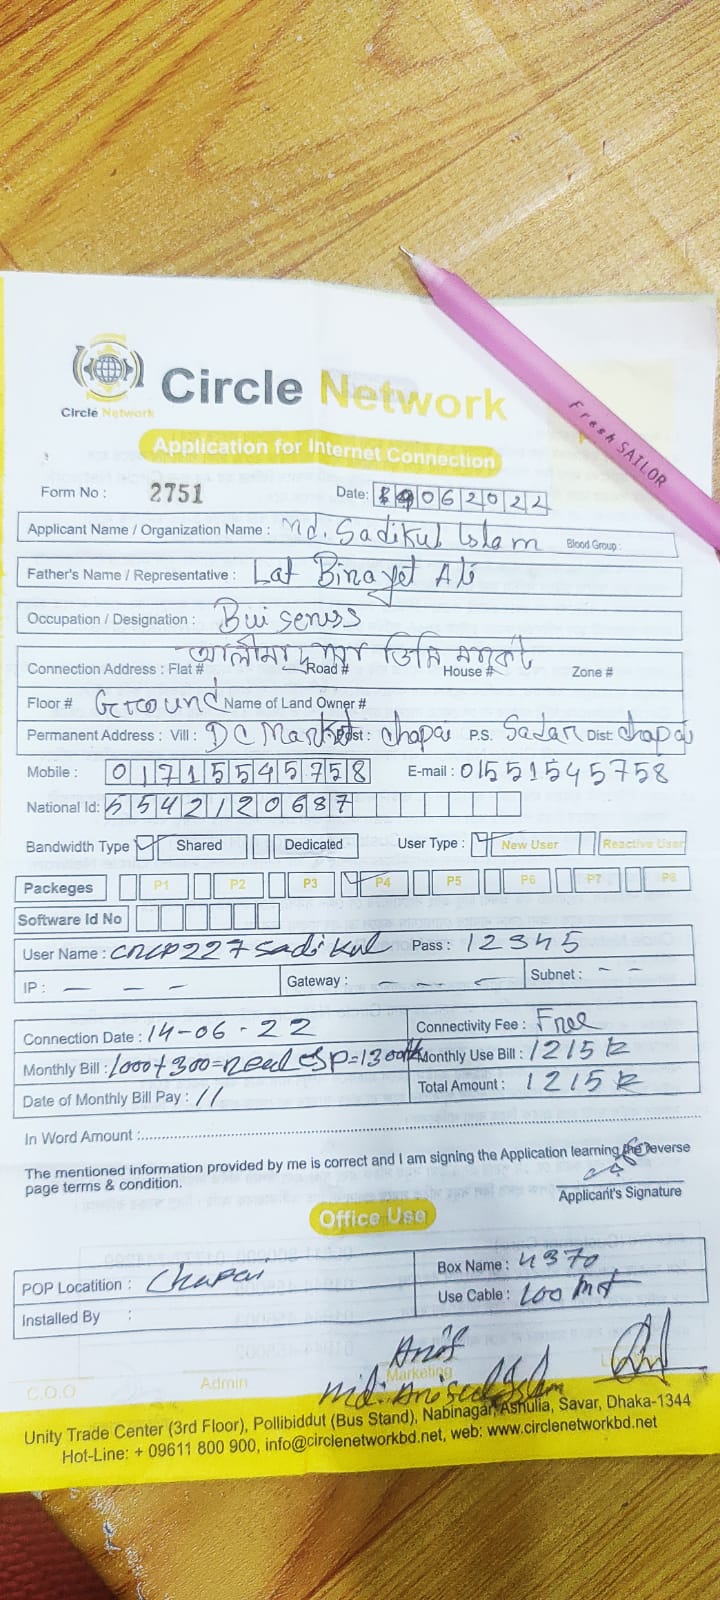 Fresh SAILOR
Circle Network
Circle Network
Application for Internet Connection
Form No : 2751 Date: 062022
Applicant Name / Organization Name : Md. Sadikul Islam Blood Group :
Father's Name / Representative : Lat Binayet Ali
Occupation / Designation : Buiseness
Connection Address : Flat # Road # House # Zone #
Floor # Name of Land Owner #
Permanent Address : Vill : DC Market Post : Chapai P.S. Sadar Dist: Chapai
Mobile : 01715545758 E-mail : 01551545758
National Id: 5542120687
Bandwidth Type Shared Dedicated User Type : New User Reactive User
Packeges P1 P2 P3 P4 P5 P6 P7 P8
Software Id No
User Name : Pass : 12345
IP : - - - Gateway : - - - Subnet : - -
Connection Date : 14-06-22 Connectivity Fee : Free
Monthly Bill : 1000+300= Monthly Use Bill : 1215
Date of Monthly Bill Pay : 11 Total Amount : 1215
In Word Amount :
The mentioned information provided by me is correct and I am signing the Application learning the reverse
page terms & condition.
Applicant's Signature
Office Use
POP Locatition : Chapai Box Name : 4370
Installed By : Use Cable : 100 mt
C.O.O Admin Marketing
Unity Trade Center (3rd Floor), Pollibiddut (Bus Stand), Nabinagar, Ashulia, Savar, Dhaka-1344
Hot-Line: + 09611 800 900, info@circlenetworkbd.net, web: www.circlenetworkbd.net